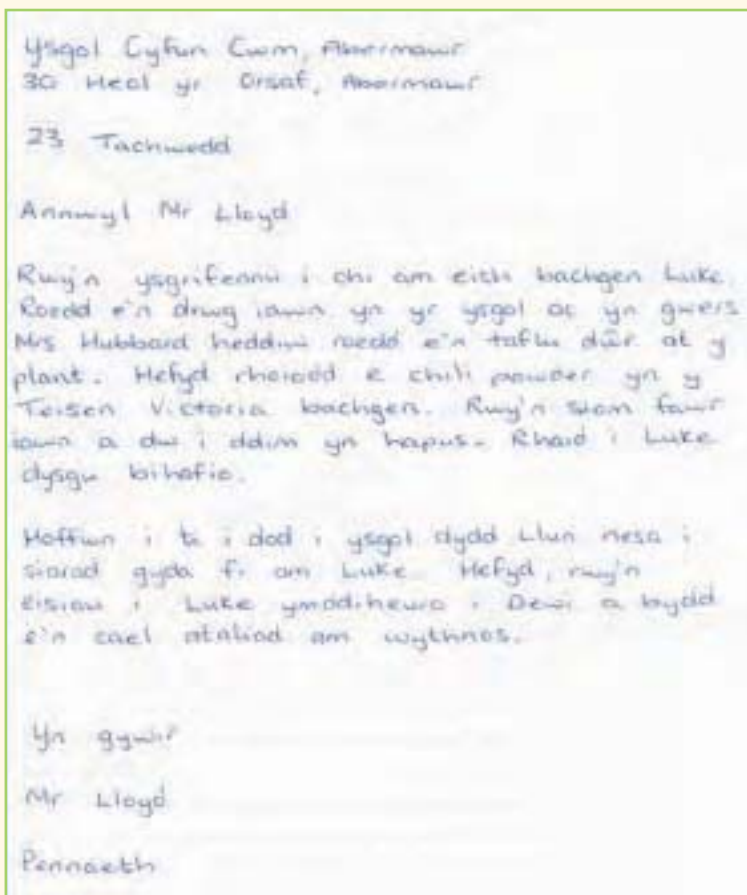 Ysgol Gyfun Cwm, Abermawr
30 Heol yr Orsaf, Abermawr
23 Tachwedd
Annwyl Mr Lloyd
Rwy'n ysgrifennu i chi am eich bachgen Luke.
Roedd e'n drwg iawn yn yr ysgol ac yn gwers
Mrs Hubbard heddiw roedd e'n taflu dŵr at y
plant. Hefyd rhoiodd e chili powder yn y
Teisen Victoria bachgen. Rwy'n siom fawr
iawn a dw i ddim yn hapus. Rhaid i Luke
dysgu bihafio.
Hoffwn i ti i dod i ysgol dydd Llun nesa i
siarad gyda fi am Luke. Hefyd, rwy'n
eisiau i Luke ymddiheuro i Dewi a bydd
e'n cael ataliad am wythnos.
Yn gywir
Mr Lloyd
Pennaeth